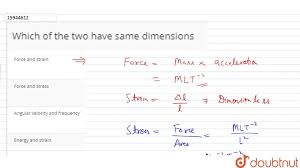 15944612
Which of the two have same dimensions
Force and strain
Force = Mass × acceleration
= MLT⁻²
Force and stress
Strain = Δl / l ⇒ Dimension less
Angular velocity and frequency
Stress = Force / Area = MLT⁻² / L²
Energy and strain
doubtnut